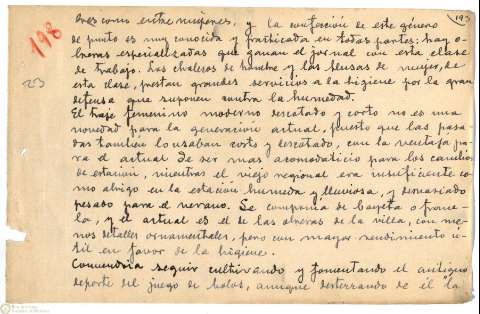 193
198
bres como entre mujeres, y la confección de este género
de punto es muy conocida y practicada en todas partes: hay o-
breras especializadas que ganan el jornal con esta clase
de trabajo. Los chalecos de hombre y las blusas de mujer, de
23
esta clase, prestan grandes servicios a la higiene por la gran
defensa que suponen contra la humedad.
El traje femenino moderno descotado y corto no es una
novedad para la generación actual, puesto que las pasa-
das tambien lo usaban corto y descotado, con la ventaja pa-
ra el actual de ser mas acomodaticio para los cambios
de estación, mientras el viejo regional era insuficiente co-
mo abrigo en la estación humeda y lluviosa, y demasiado
pesado para el verano. Se componia de bayeta o frane-
la, y el actual es el de las obreras de la villa, con me-
nos detalles ornamentales, pero con mayor rendimiento ú-
til en favor de la higiene.
Convendria seguir cultivando y fomentando el antiguo
deporte del juego de bolos, aunque desterrando de él la